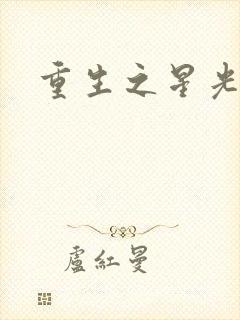 重生之星光
盧紅曼